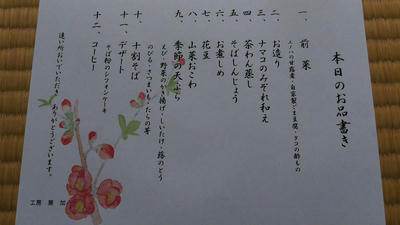 本日のお品書き
一、前菜
エノハの甘露煮・自家製ごま豆腐・タコの酢もの
二、お造り
三、ナマコのみぞれ和え
四、茶わん蒸し
五、そばしんじょう
六、お煮しめ
七、花豆
八、山菜おこわ
九、季節の天ぷら
えび・野菜のかき揚げ・しいたけ・蕗のとう
のびる・さつまいも・たらの芽
十、十割そば
十一、デザート
そば粉のシフォンケーキ
十二、コーヒー
遠い所おいでいただき
ありがとうございます。
工房 無加